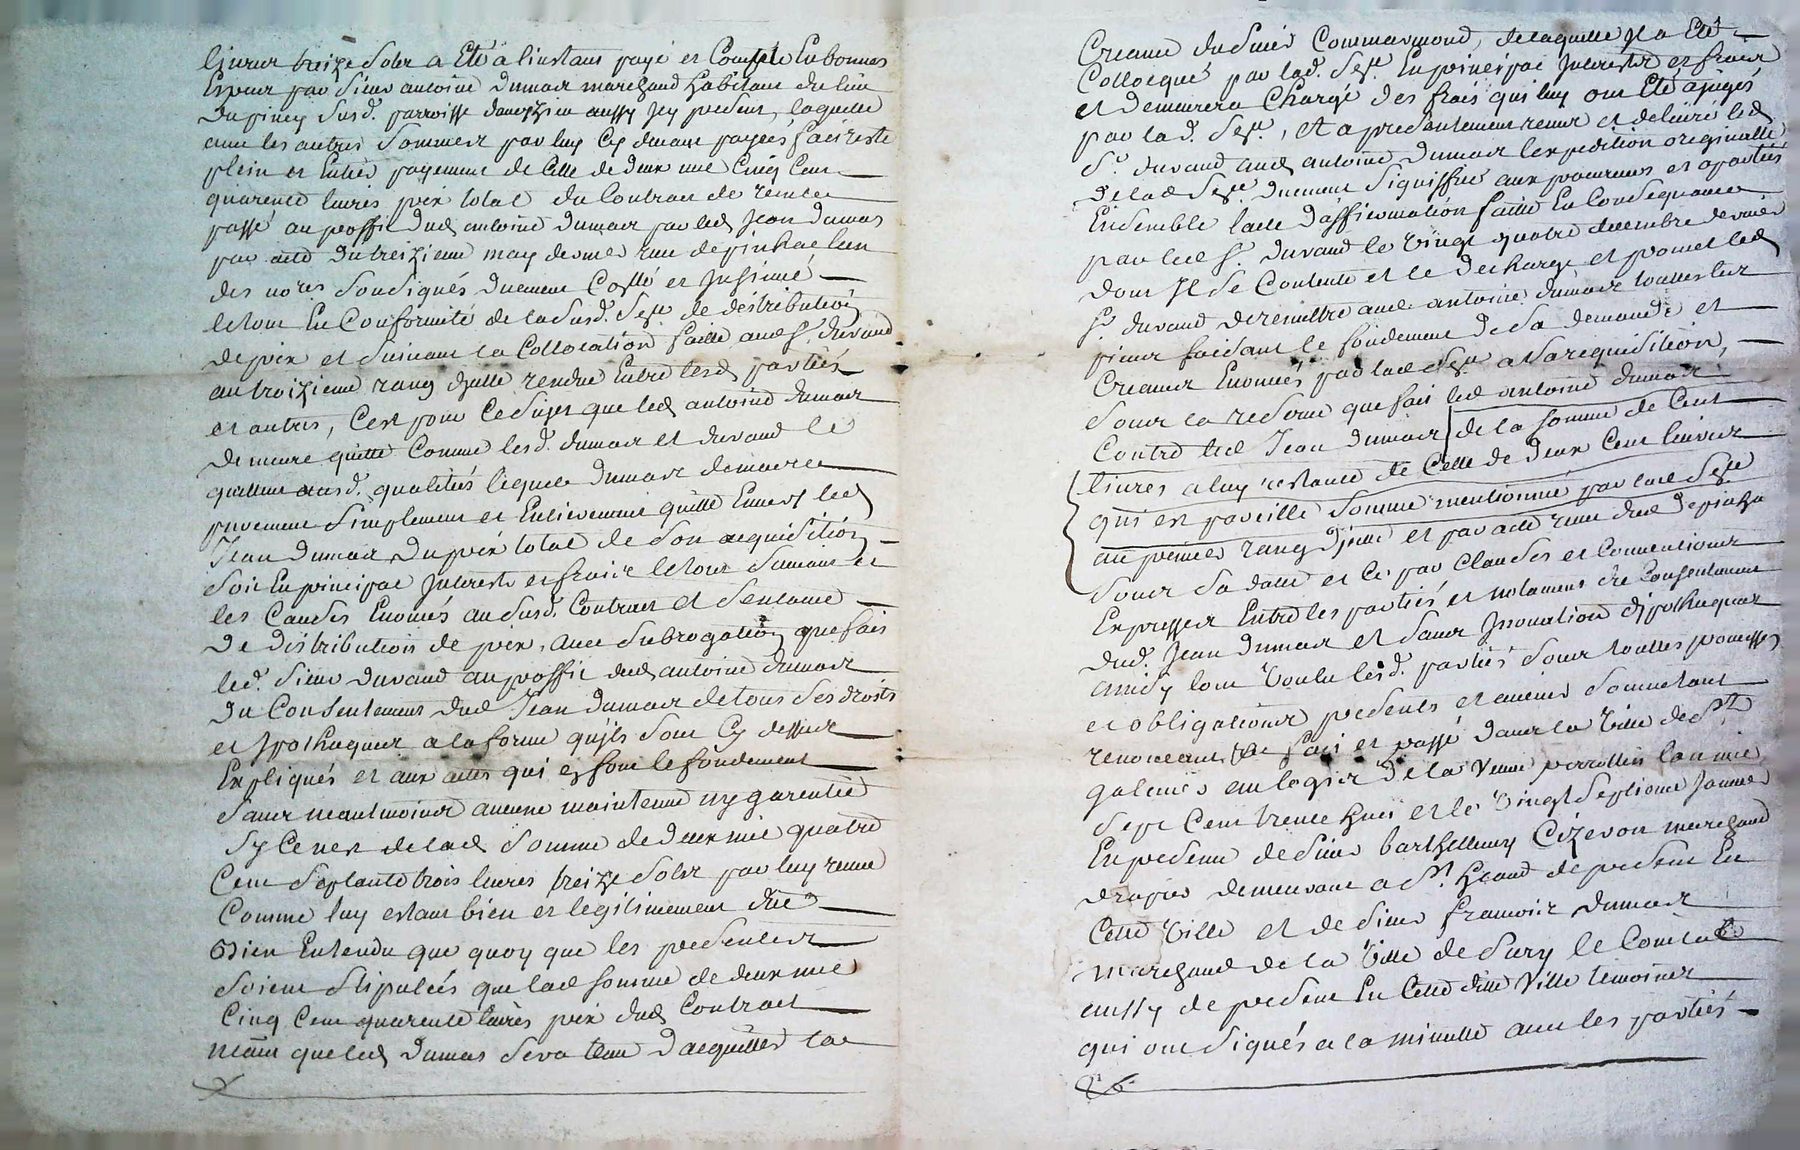 livres treize Sols a Eté a l'instant payé et Compté En bonnes
Espece par Sieur antoine Dumas marchand habitant du lieu
Du piney Susd. parroisse aussy Icy present, laquelle
avec les autres Sommes par luy Cy devant payées fait reste
plein et Entier payement de Celle de deux mil Cinq Cent
quarente livres prix total du Contrat de vente
passé au proffit dud antoine Dumas par led Jean Dumas
par acte du treizieme may dernier reçu
des nores Soussignés duement Collé et Insinué
le tout En Conformité de la Susd. Sce de destribution
de prix et Suivant la Collocation faitte aud Sr. durand
au troizieme rang d'jcelle rendue Entre lesd parties
et autres, C'est pour Ce Sujet que led antoine dumas
demeure quitte Comme lesd. dumas et durand le
quittent ausd. qualités lequel Dumas demeure
purement Simplement et Entierement quitte Envers led
Jean Dumas du prix total de Son acquisition
Soit En principal Interests et fraix le tout Suivant et
les Causes Enoncés au Susd. Contrat et Sentence
De distribution de prix, avec Subrogation que fait
led. Sieur Durand au proffit dud antoine dumas
Du Consentement dud Jean Dumas de tous Ses droits
et Ipotheques a la forme qu'jls Sont Cy dessus
Expliqués et aux actes qui en font le fondement
Sans neantmoins aucune maintenue ny garentie
Sy Ce n'est de lad Somme de deux mil quatre
Cent Septante trois livres treize Sols par luy reçue
Comme luy estant bien et legitimement düe
Bien Entendu que quoy que les presentes
Soient Stipulées que lad Somme de deux mil
Cinq Cent quarente livres prix dud Contrat
neant que led Dumas Sera tenu D'acquitter la
Creance du Sieur Commarmond, de laquelle Il a Eté
Colloqué par lad. Sce En principal Interests et fraix
et demeurera Chargé des frais qui luy ont Eté ajugés
par lad. Sce, et a presentement remis et delivré led
Sr. durand aud antoine Dumas l'expedition originalle
De lad Sce Duement Signiffiée aux procureurs et parties
Ensemble l'acte d'affirmation faitte En Consequance
par led Sr. durand le Vingt quatre decembre dernier
Dont Il Se Contente et le decharge et promet led
Sr. durand de remettre aud. antoine dumas touttes les
pieces faisant le fondement de Sa demande et
Creances Enoncés par lad Sce a Sa requisition,
Sous la reserve que fait led antoine dumas
Contre led Jean Dumas de la Somme de Cent
livres a luy restante de Celle de deux Cent livres
qui est pareille Somme mentionnée par lad Sce
au premier rang d'jcelle et par acte reçu dud
Sous Sa datte et Ce par Clauses et Conventions
Expresses Entre les parties et notament du Consentement
dud. Jean Dumas et Sans Innovation d'jpotheques
ainsy l'ont Voulu lesd. parties Sous touttes promesses
et obligations presents et avenir Soumettant
renonceant, fait et passé Dans la Ville de St
galmier au logis de la Veuve perrottin l'an mil
Sept Cent trente huit et le Vingt Septieme Janvier
En presence de Sieur barthellemy Cizeron marchand
drapier demeurant a St. heand de present En
Cette Ville et de Sieur francois dumas
marchand de la Ville de Sury le Comtal
aussy de present En Cette ditte Ville temoins
qui ont Signés a la minutte avec les parties